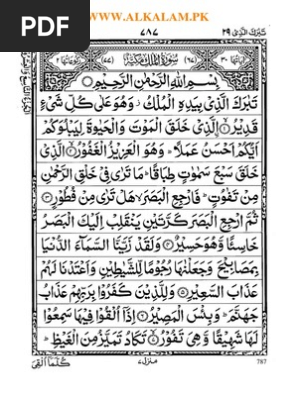 www.ALKALAM.PK
PDF
تبرك الذی ۲۹
۷۸۷
الملك ۶۷
سُوْرَةُ الْمُلْكِ مَكِّيَّةٌ
بِسْمِ اللهِ الرَّحْمٰنِ الرَّحِيْمِ
تَبٰرَكَ الَّذِيْ بِيَدِهِ الْمُلْكُ وَهُوَ عَلٰى كُلِّ شَيْءٍ
قَدِيْرُ ۙ الَّذِيْ خَلَقَ الْمَوْتَ وَالْحَيٰوةَ لِيَبْلُوَكُمْ
اَيُّكُمْ اَحْسَنُ عَمَلًا ؕ وَهُوَ الْعَزِيْزُ الْغَفُوْرُ ۙ الَّذِيْ
خَلَقَ سَبْعَ سَمٰوٰتٍ طِبَاقًا ؕ مَا تَرٰى فِيْ خَلْقِ الرَّحْمٰنِ
مِنْ تَفٰوُتٍ ؕ فَارْجِعِ الْبَصَرَ ۙ هَلْ تَرٰى مِنْ فُطُوْرٍ
ثُمَّ ارْجِعِ الْبَصَرَ كَرَّتَيْنِ يَنْقَلِبْ اِلَيْكَ الْبَصَرُ
خَاسِئًا وَّهُوَ حَسِيْرٌ وَلَقَدْ زَيَّنَّا السَّمَآءَ الدُّنْيَا
بِمَصَابِيْحَ وَجَعَلْنٰهَا رُجُوْمًا لِّلشَّيٰطِيْنِ وَاَعْتَدْنَا لَهُمْ
عَذَابَ السَّعِيْرِ وَلِلَّذِيْنَ كَفَرُوْا بِرَبِّهِمْ عَذَابُ
جَهَنَّمَ ؕ وَبِئْسَ الْمَصِيْرُ اِذَآ اُلْقُوْا فِيْهَا سَمِعُوْا
لَهَا شَهِيْقًا وَّهِيَ تَفُوْرُ ۙ تَكَادُ تَمَيَّزُ مِنَ الْغَيْظِ ؕ
كُلَّمَآ اُلْقِيَ
منزل ۷
787